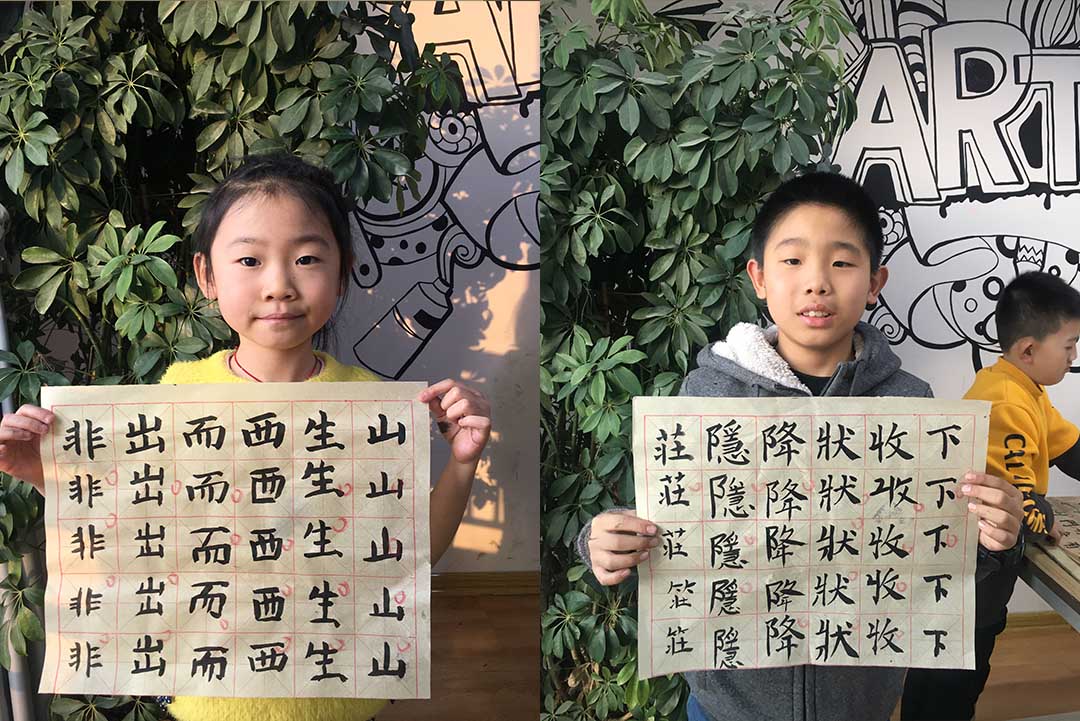 山山山山山
生生生生生
西西西西西
而而而而而
出出出出出
非非非非非
ART
下下下下下
收收收收收
狀狀狀狀狀
降降降降降
隱隱隱隱隱
莊莊莊莊莊